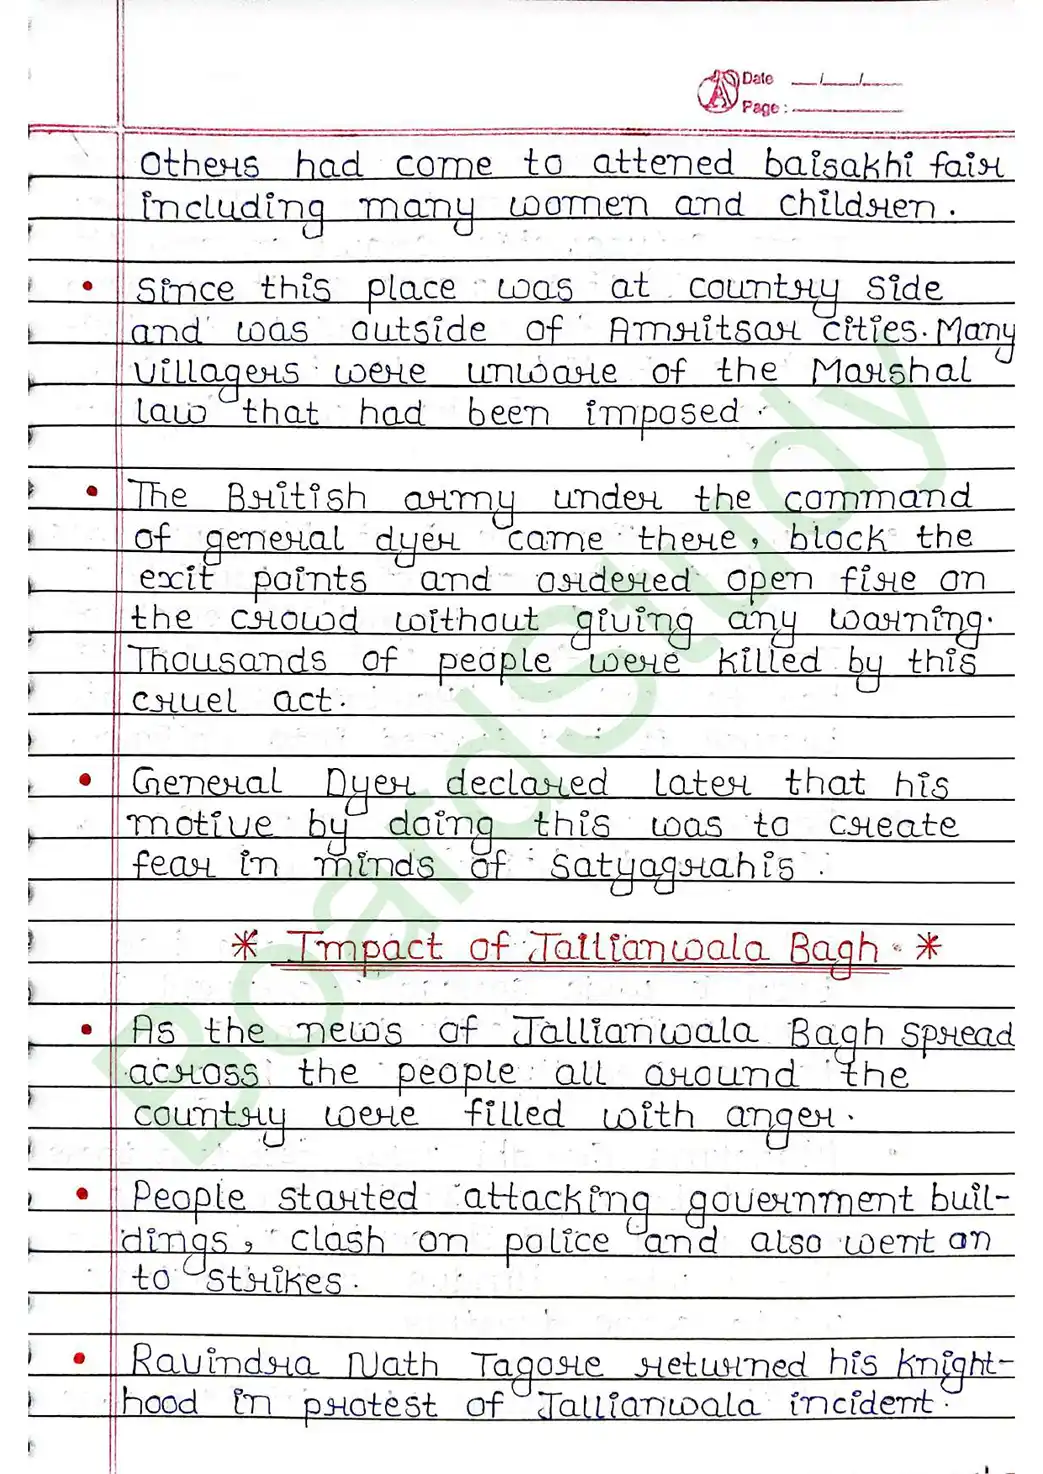 Date __/__/__
Page :
Others had come to attened baisakhi fair
including many women and children.
• Since this place was at country side
and was outside of Amritsar cities. Many
villagers were unware of the Marshal
law that had been imposed.
• The British army under the command
of general dyer came there, block the
exit points and ordered open fire on
the crowd without giving any warning.
Thousands of people were killed by this
cruel act.
• General Dyer declared later that his
motive by doing this was to create
fear in minds of satyagrahis.
* Impact of Jallianwala Bagh. *
• As the news of Jallianwala Bagh spread
across the people all around the
country were filled with anger.
• People started attacking government buil-
dings, clash on police and also went on
to strikes.
• Ravindra Nath Tagore returned his knight-
hood in protest of Jallianwala incident.
BoardStudy